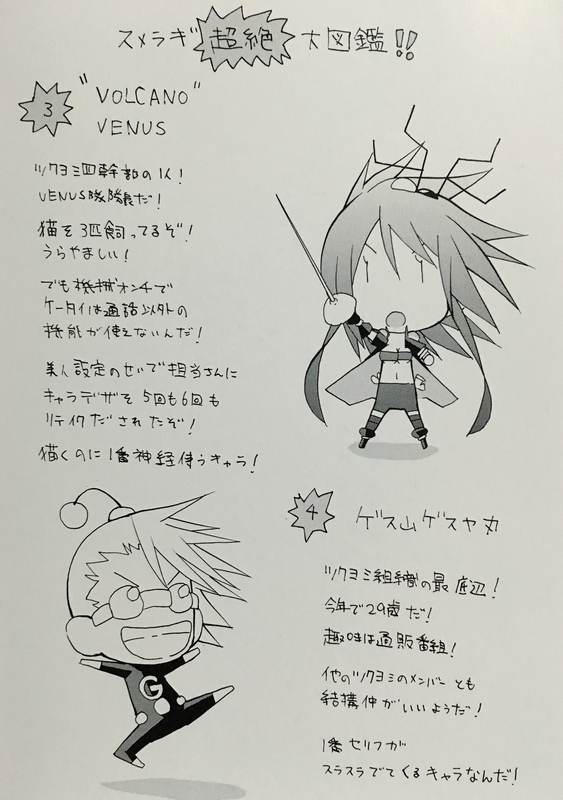 スメラギ 超絶 大図鑑!!
3
"VOLCANO"
VENUS
ツクヨミ四幹部の1人!
VENUS隊隊長だ!
猫を3匹飼ってるぞ!
うらやましい!
でも機械オンチで
ケータイは通話以外の
機能が使えないんだ!
美人設定のせいで担当さんに
キャラデザを5回も6回も
リテイクだされたぞ!
描くのに1番神経使うキャラ!
4
ゲス山ゲスヤ丸
ツクヨミ組織の最底辺!
今年で29歳だ!
趣味は通販番組!
他のツクヨミのメンバーとも
結構仲がいいようだ!
1番セリフが
スラスラでてくるキャラなんだ!
G